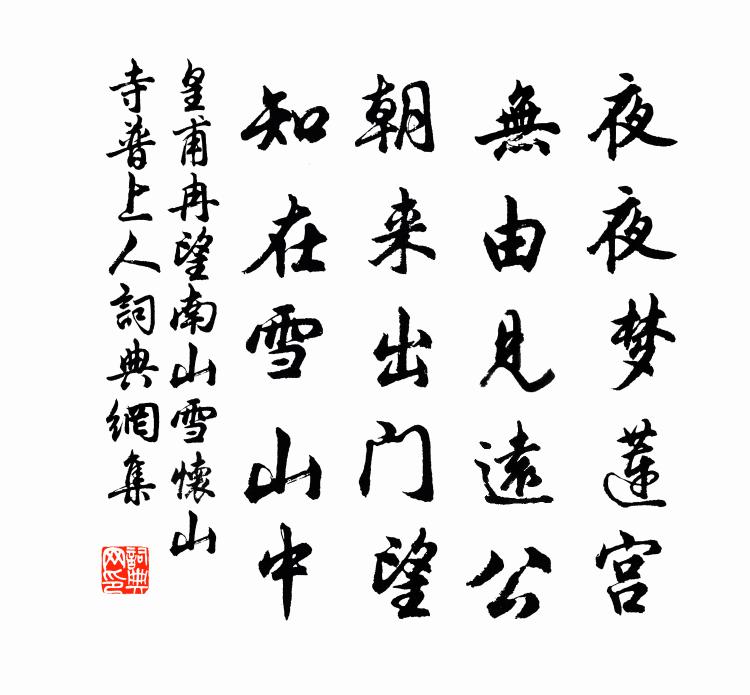 夜夜梦蓮宫
無由見遠公
朝来出门望
知在雪山中
皇甫冉望南山雪懷山
寺普上人詞典網集
詞典网印